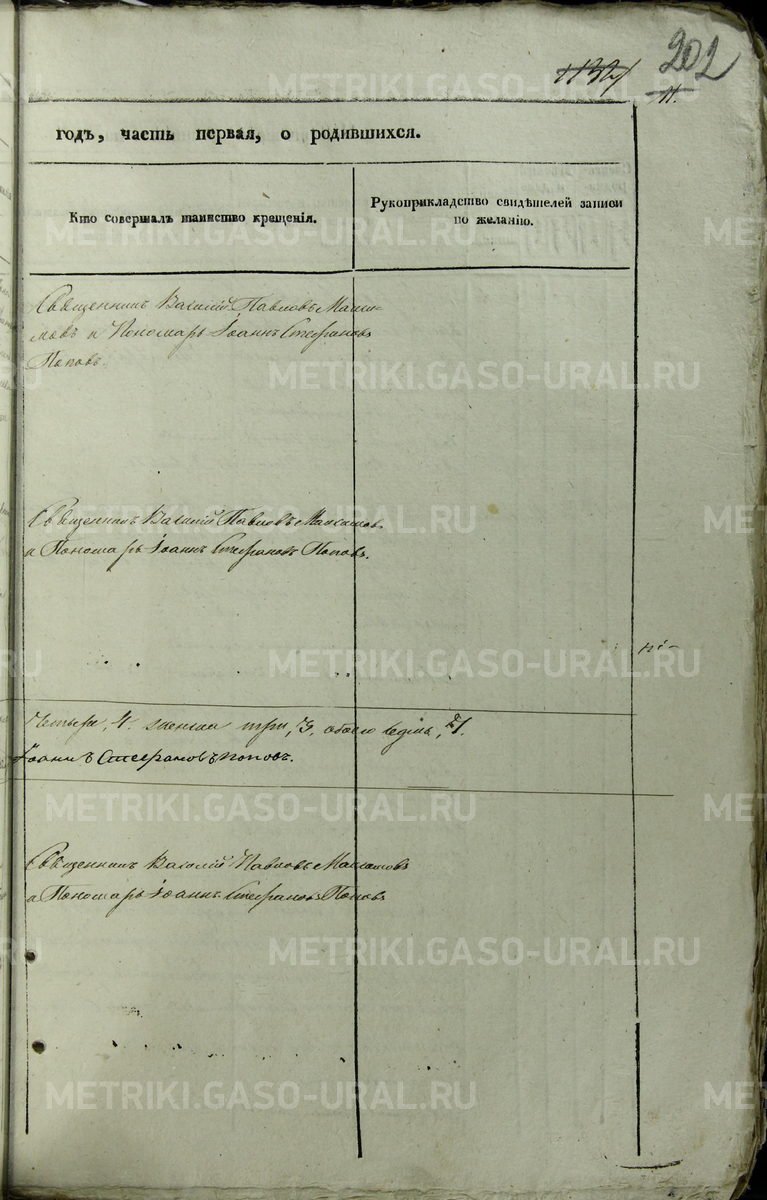 202
1132
11.
годъ, часть первая, о родившихся.
Кто совершалъ таинство крещенія.
Рукоприкладство свидѣтелей записи
по желанію.
Священникъ Василій Павловъ Макси-
мовъ и Пономарь Іоаннъ Стефановъ
Поповъ.
Священникъ Василій Павловъ Максимовъ
и Пономарь Іоаннъ Стефановъ Поповъ.
Четыре, 4. женска три, 3, обоего седмь, 7.
Іоаннъ Стефановъ Поповъ.
Священникъ Василій Павловъ Максимовъ
и Пономарь Іоаннъ Стефановъ Поповъ
METRIKI.GASO-URAL.RU